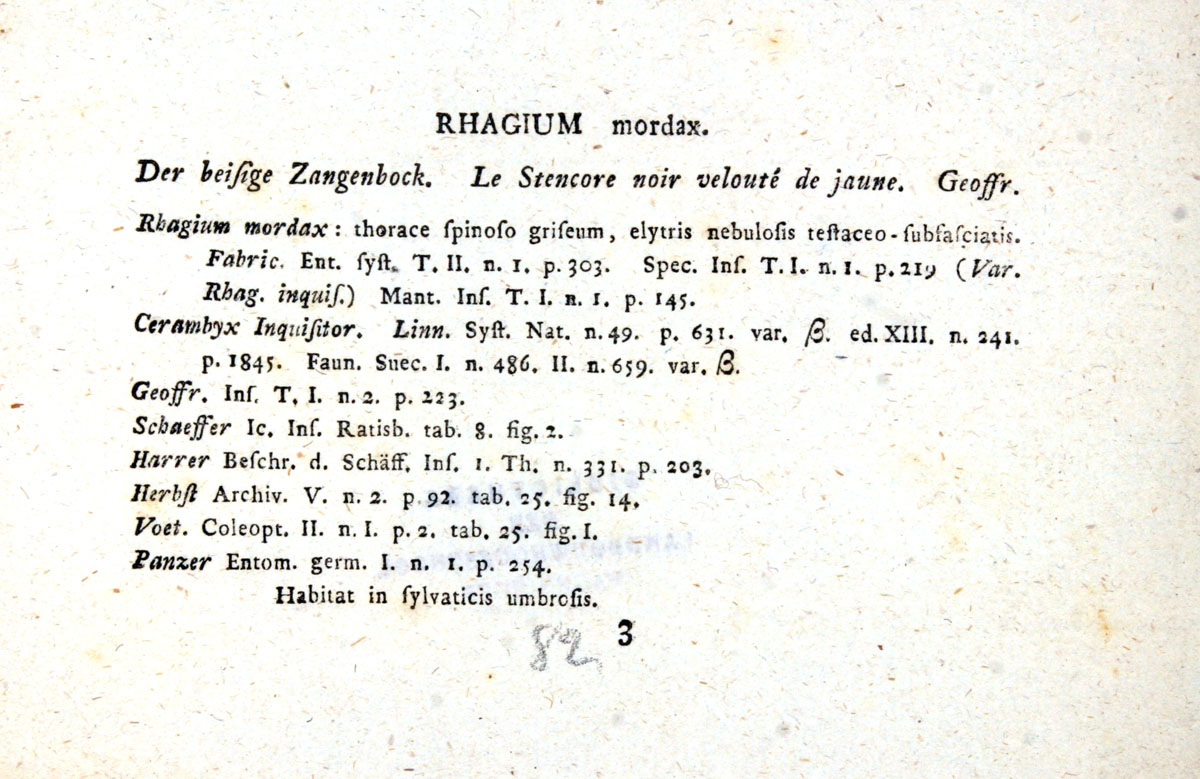 RHAGIUM mordax.
Der beiſige Zangenbock. Le Stencore noir velouté de jaune. Geoffr.
Rhagium mordax: thorace ſpinoſo griſeum, elytris nebuloſis teſtaceo-ſubfaſciatis.
Fabric. Ent. ſyſt. T. II. n. 1. p. 303. Spec. Inſ. T. I. n. 1. p. 219 (Var.
Rhag. inquiſ.) Mant. Inſ. T. I. n. 1. p. 145.
Cerambyx Inquiſitor. Linn. Syſt. Nat. n. 49. p. 631. var. β. ed. XIII. n. 241.
p. 1845. Faun. Suec. I. n. 486. II. n. 659. var. β.
Geoffr. Inſ. T. I. n. 2. p. 223.
Schaeffer Ic. Inſ. Ratisb. tab. 8. fig. 2.
Harrer Beſchr. d. Schäff. Inſ. 1. Th. n. 331. p. 203.
Herbſt Archiv. V. n. 2. p. 92. tab. 25. fig. 14.
Voet. Coleopt. II. n. I. p. 2. tab. 25. fig. I.
Panzer Entom. germ. I. n. 1. p. 254.
Habitat in ſylvaticis umbroſis.
82 3